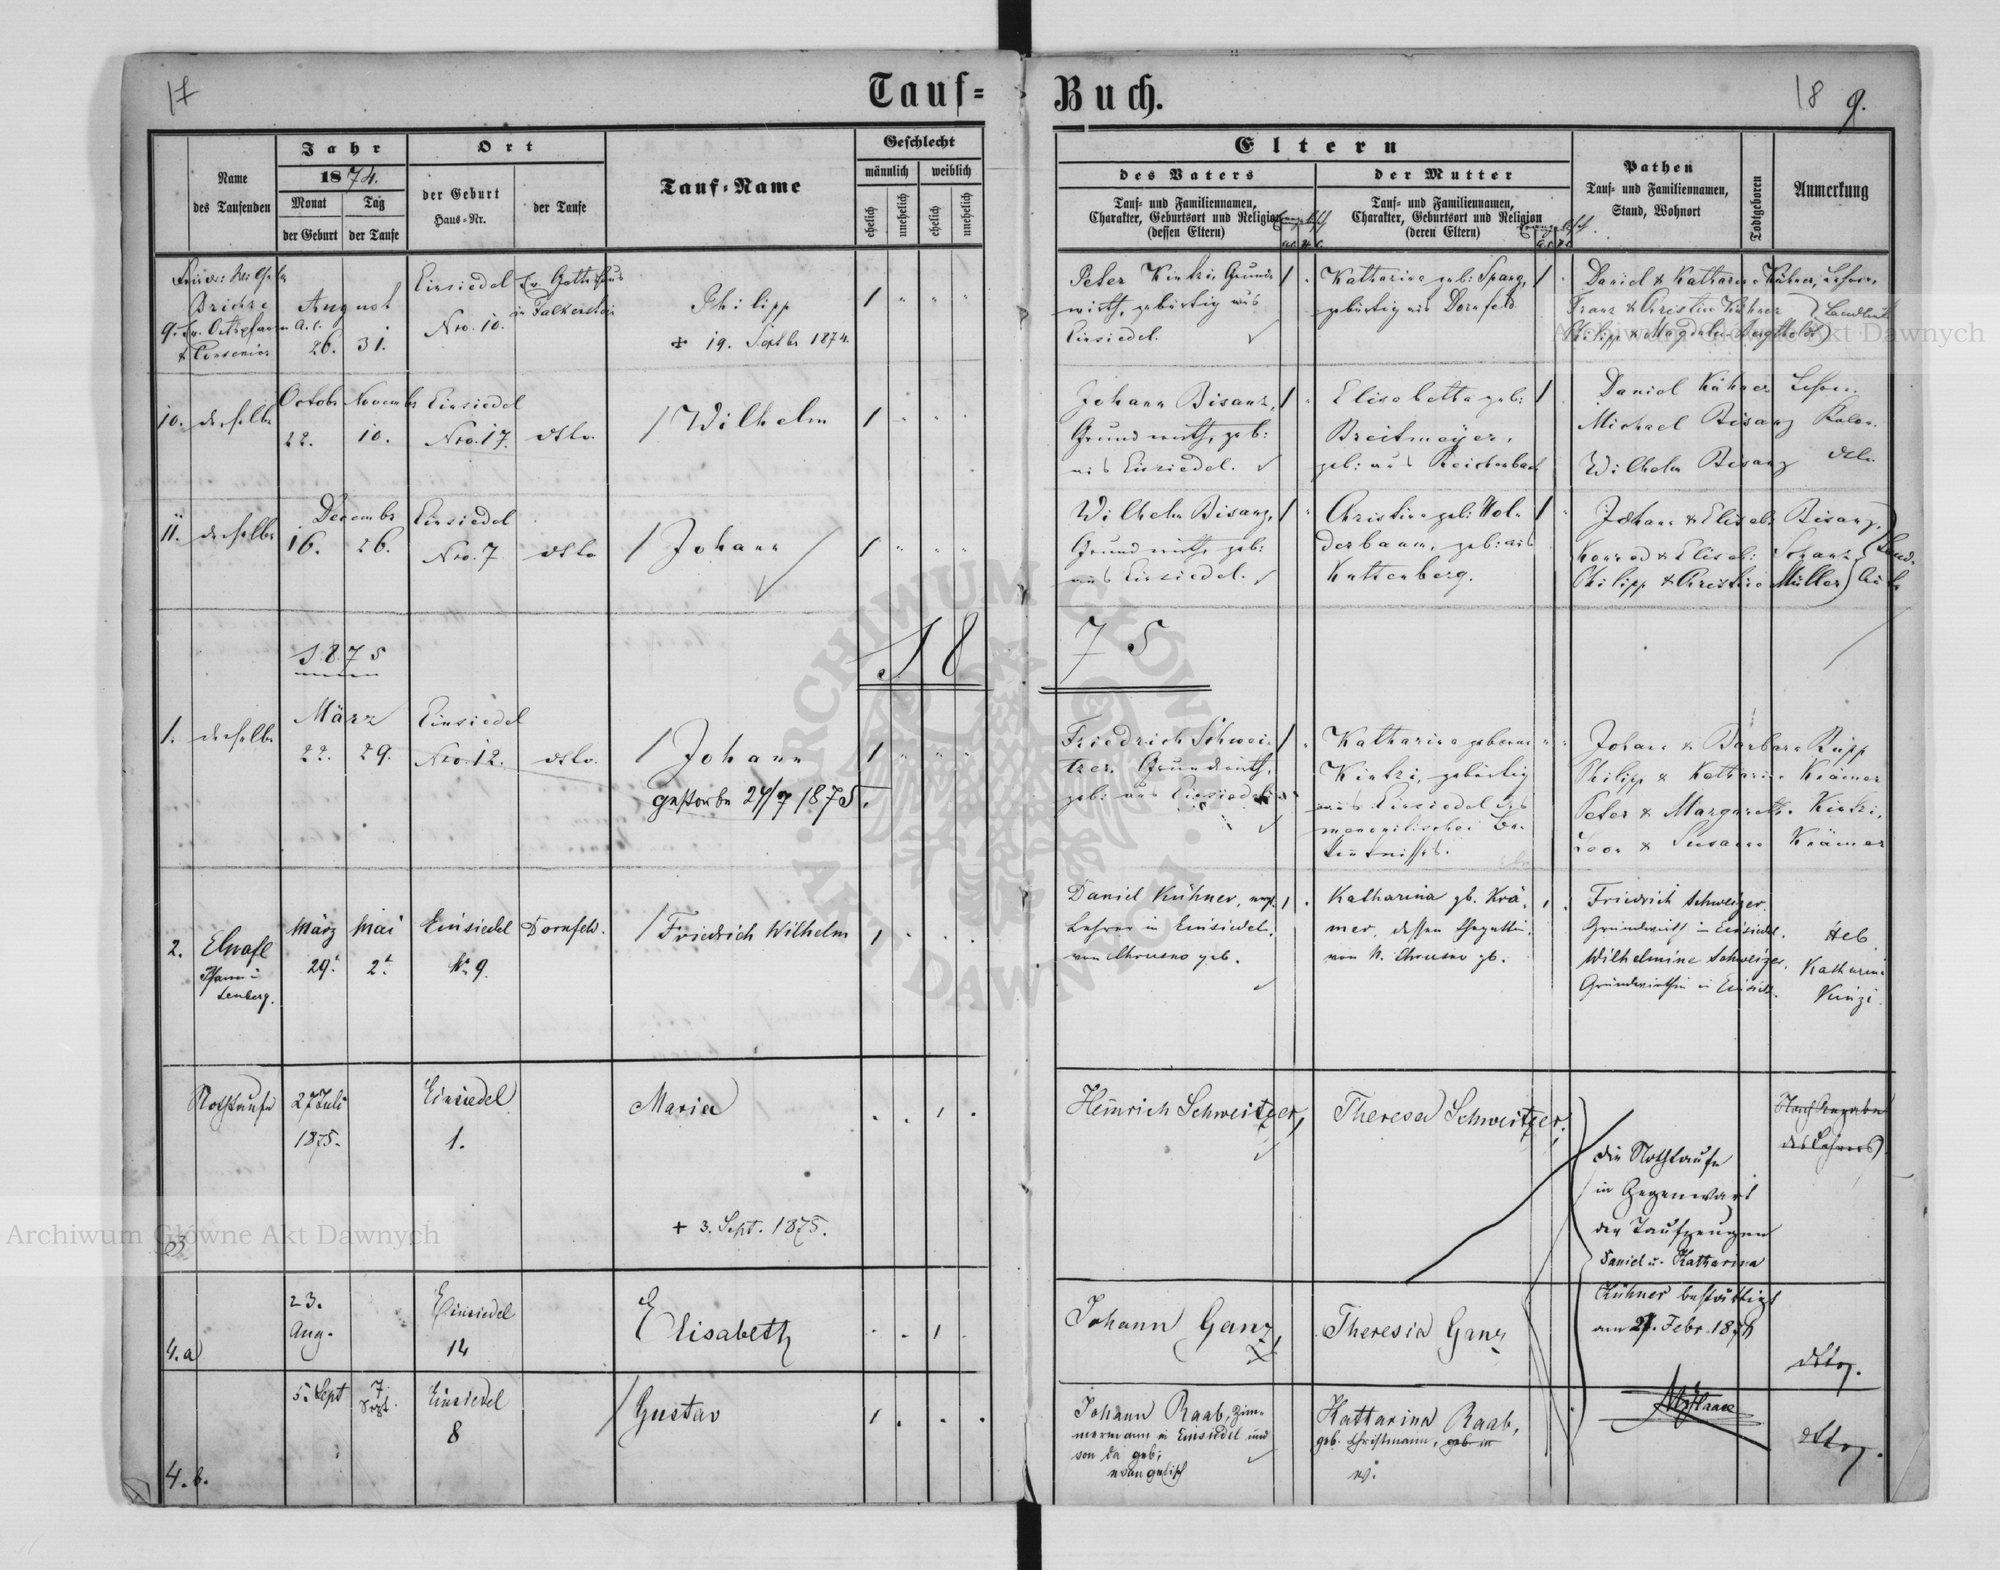 17
Tauf=
Buch.
18 9.
Name
des Taufenden
Jahr
1874.
Monat
der Geburt
Tag
der Taufe
Ort
der Geburt
Haus=Nr.
der Taufe
Tauf=Name
Geschlecht
männlich
weiblich
ehelich
unehelich
ehelich
unehelich
Eltern
des Vaters
Tauf= und Familiennamen,
Charakter, Geburtsort und Religion
(dessen Eltern)
der Mutter
Tauf= und Familiennamen,
Charakter, Geburtsort und Religion
(deren Eltern)
Pathen
Tauf= und Familiennamen,
Stand, Wohnort
Todtgeboren
Anmerkung
9.
August
26. 31.
Einsiedel
Nro. 10.
Philipp
+ 19. Septbr 1874.
1
Peter Kintzi Grund=
wirth, gebürtig aus
Einsiedel.
Katharina geb: Spang,
gebürtig aus Dornfeld
Daniel & Katharina Kühner, Lehrer
Franz & Christine Kühner
10. derselbe
Octob. Novembr
22. 10.
Einsiedel
Nro. 17.
dtto.
Wilhelm
1
Johann Bisanz,
Grundwirth, geb:
aus Einsiedel.
Elisabetha geb:
Breitmayer,
geb: aus Reichenbach
Daniel Kühner Lehrer.
Michael Bisanz
Wilhelm Bisanz dto.
11. derselbe
Decembr
16. 26.
Einsiedel
Nro. 7
dtto
Johann
1
Wilhelm Bisanz,
Grundwirth, geb:
aus Einsiedel.
Christina geb: Hol=
derbaum, geb: aus
Kattenberg.
Johann & Elisab: Bisanz,
Konrad & Elisab:
Philipp & Christine Müller
1875
18 75
1. derselbe
März
22. 29.
Einsiedel
Nro. 12.
dtto.
Johann
gestorben 24/7 1875.
1
Friedrich Schwei=
tzer, Grundwirth,
geb: aus Einsiedel
Katharina geborne
Kintzi, gebürtig
aus Einsiedel
Johann & Barbara Rupp
Philipp & Katharina Krämer
Peter & Margareth. Kintzi,
& Susanna Krämer
2.
März Mai
29. 2.
Einsiedel
Nr. 9.
Dornfeld.
Friedrich Wilhelm
1
Daniel Kühner, evgl.
Lehrer in Einsiedel,
von Chrusno geb.
Katharina gb. Krä=
mer, dessen Ehegattin,
von N. Chrusno gb.
Friedrich Schweizer.
Grundwirth in Einsiedel.
Wilhelmine Schweizer.
Grundwirthin in Einsied.
Heb.
Katharina
Kinzi.
Nothtaufe
27 Juli
1875.
Einsiedel
1.
Maria
+ 3. Sept. 1875.
1
Heinrich Schweitzer,
Theresa Schweitzer.
Nach Angabe
des Lehrers
die Nothtaufe
in Gegenwart
der Taufzeugen
Daniel u. Katharina
Kühner bestättigt
4.a
23.
Aug.
Einsiedel
14
Elisabeth
1
Johann Ganz,
Theresia Ganz
dtto.
4.b.
5. Sept
7.
Sept.
Einsiedel
8
Gustav
1
Johann Raab, Zim=
mermann in Einsiedel und
von da geb;
evangelisch
Katharina Raab,
geb. Christmann, geb. in
ev.
dtto.
Archiwum Główne Akt Dawnych
Archiwum Główne Akt Dawnych
ARCHIWUM GŁÓWNE
AKT DAWNYCH